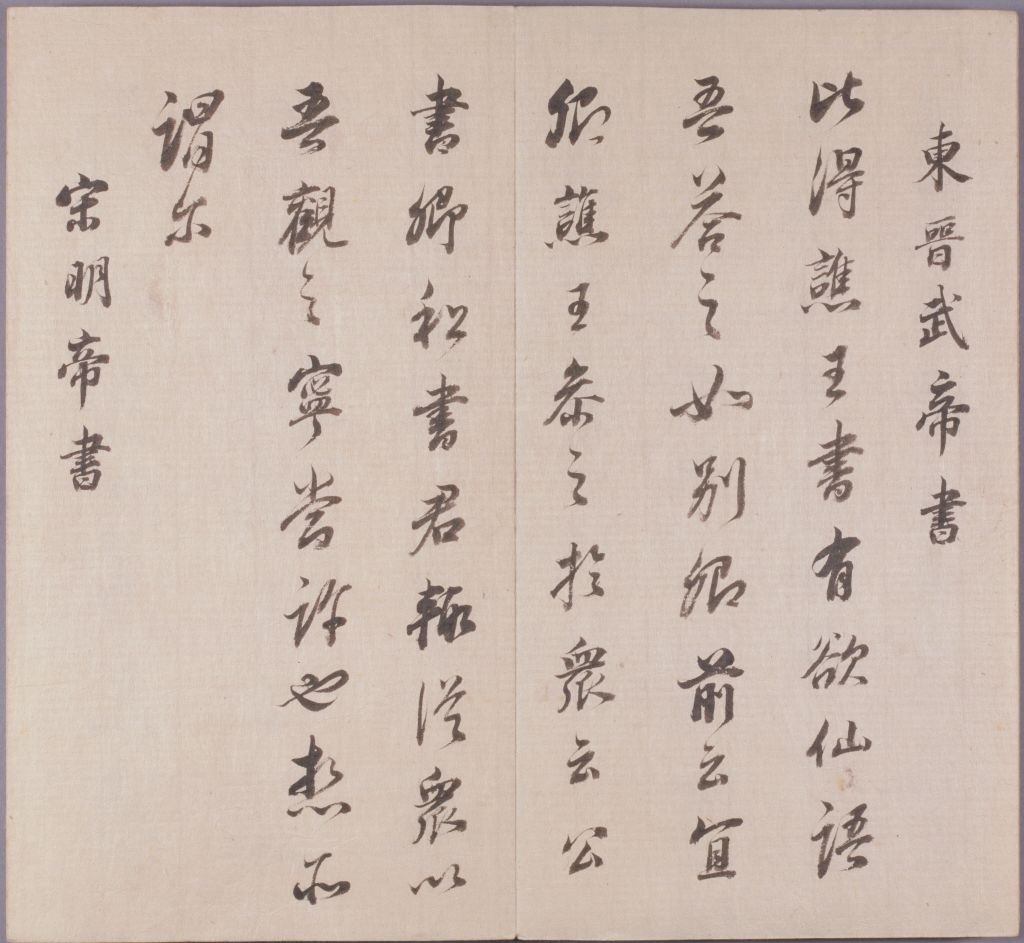 東晉武帝書
比得譙王書有欲仙語
吾荅之如別卿前云宜
卿譙王恭之於衆云公
書卿和書君輙從衆以
吾觀之寧當許也想不
謂尒
宋明帝書